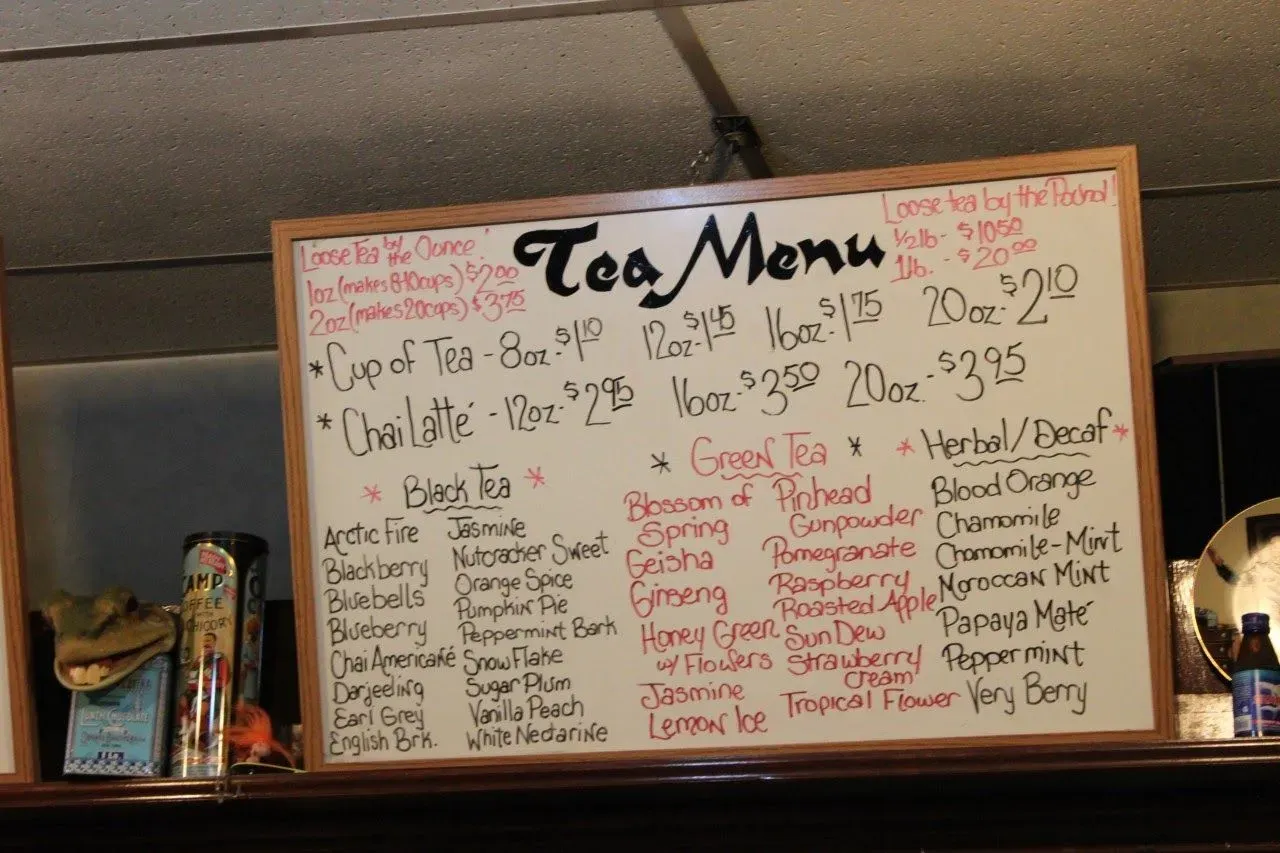 Loose Tea by the Ounce!
1oz (makes 8-10 cups) $2.00
2oz (makes 20 cups) $3.75
Tea Menu
Loose tea by the Pound!
1/2 lb - $10.50
1 lb. - $20.00
* Cup of Tea - 8oz - $1.10 12oz - $1.45 16oz - $1.75 20oz - $2.10
* Chai Latté - 12oz - $2.95 16oz - $3.50 20oz. - $3.95
* Black Tea *
Arctic Fire
Blackberry
Bluebells
Blueberry
Chai Americafé
Darjeeling
Earl Grey
English Brk.
Jasmine
Nutcracker Sweet
Orange Spice
Pumpkin Pie
Peppermint Bark
Snow Flake
Sugar Plum
Vanilla Peach
White Nectarine
* Green Tea *
Blossom of
Spring
Geisha
Ginseng
Honey Green
w/ Flowers
Jasmine
Lemon Ice
Pinhead
Gunpowder
Pomegranate
Raspberry
Roasted Apple
Sun Dew
Strawberry
Cream
Tropical Flower
* Herbal/Decaf *
Blood Orange
Chamomile
Chamomile-Mint
Moroccan Mint
Papaya Maté
Peppermint
Very Berry
CAMP
COFFEE
WITH
CHICORY